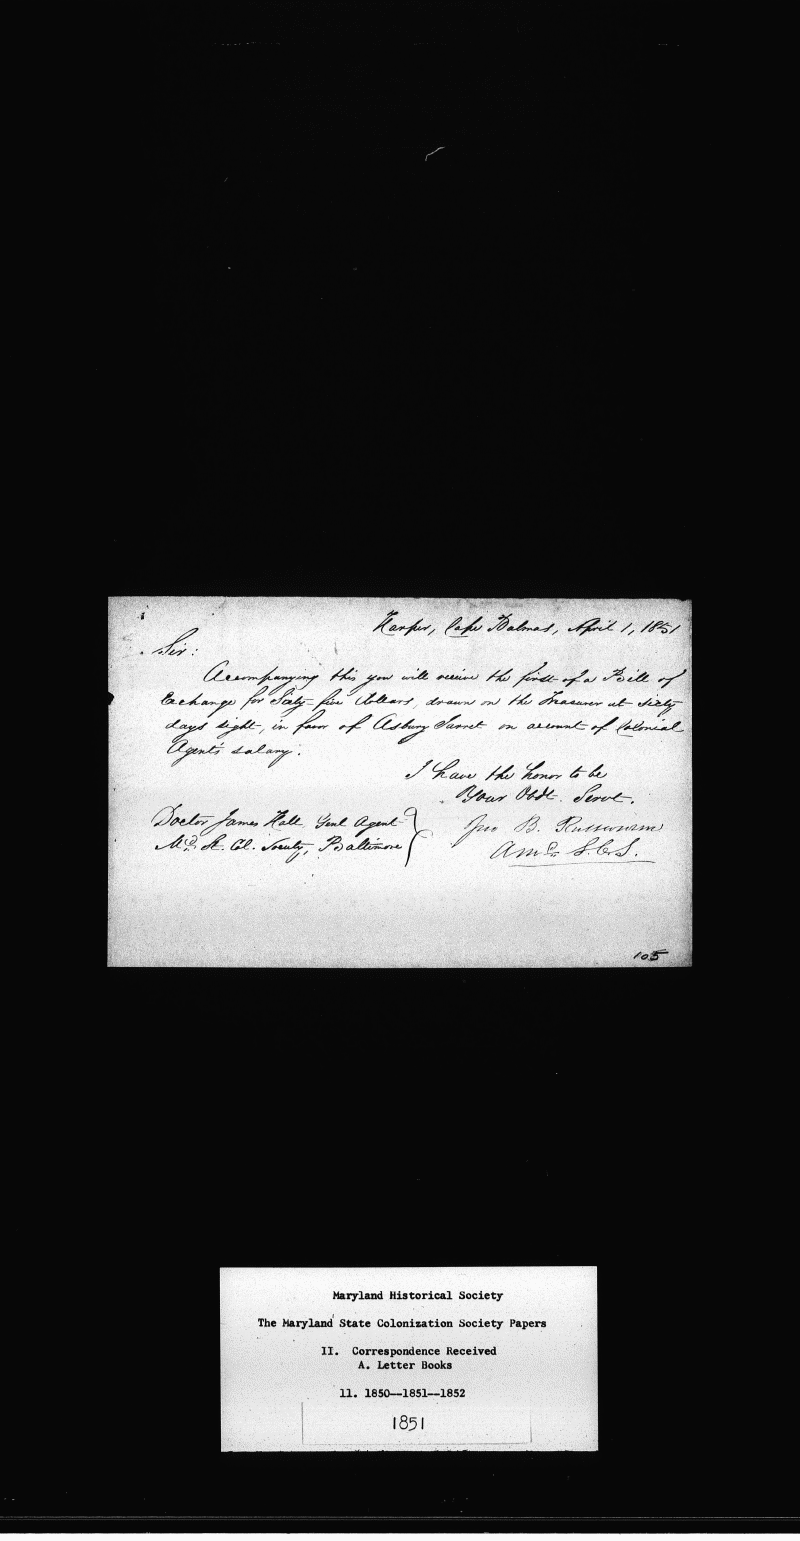 Harper, Cape Palmas, April 1, 1851
Sir:
Accompanying this you will receive the first of a Bill of
Exchange for Sixty five dollars, drawn on the Treasurer at sixty
days sight, in favor of Asbury on account of Colonial
Agent's salary.
I have the honor to be
Your Obdt. Servt.
Jno B. Russwurm
A. Md. S. C. S.
Doctor James Hall Genl Agent
Md. St. Col. Society, Baltimore
105
Maryland Historical Society
The Maryland State Colonization Society Papers
II. Correspondence Received
A. Letter Books
11. 1850--1851--1852
1851